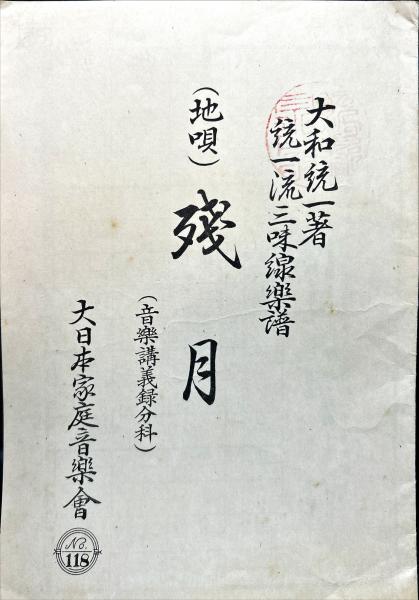 大和統一著
統一流三味線樂譜
(地唄)
殘月
(音樂講義録分科)
大日本家庭音樂會
No. 118